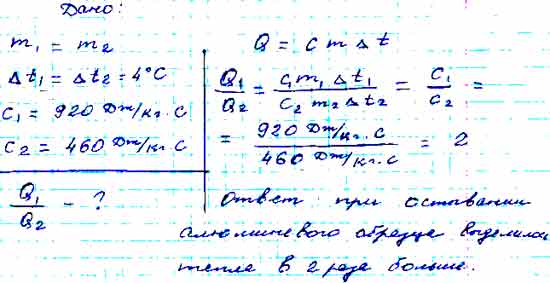 Дано:
m₁ = m₂
Δt₁ = Δt₂ = 4°C
C₁ = 920 Дж/кг·С
C₂ = 460 Дж/кг·С
Q₁/Q₂ - ?
Q = c m Δt
Q₁/Q₂ = C₁m₁Δt₁/C₂m₂Δt₂ = C₁/C₂ =
= 920 Дж/кг·С/460 Дж/кг·С = 2
Ответ: при остывании
алюминевого образца выделилось
тепла в 2 раза больше.